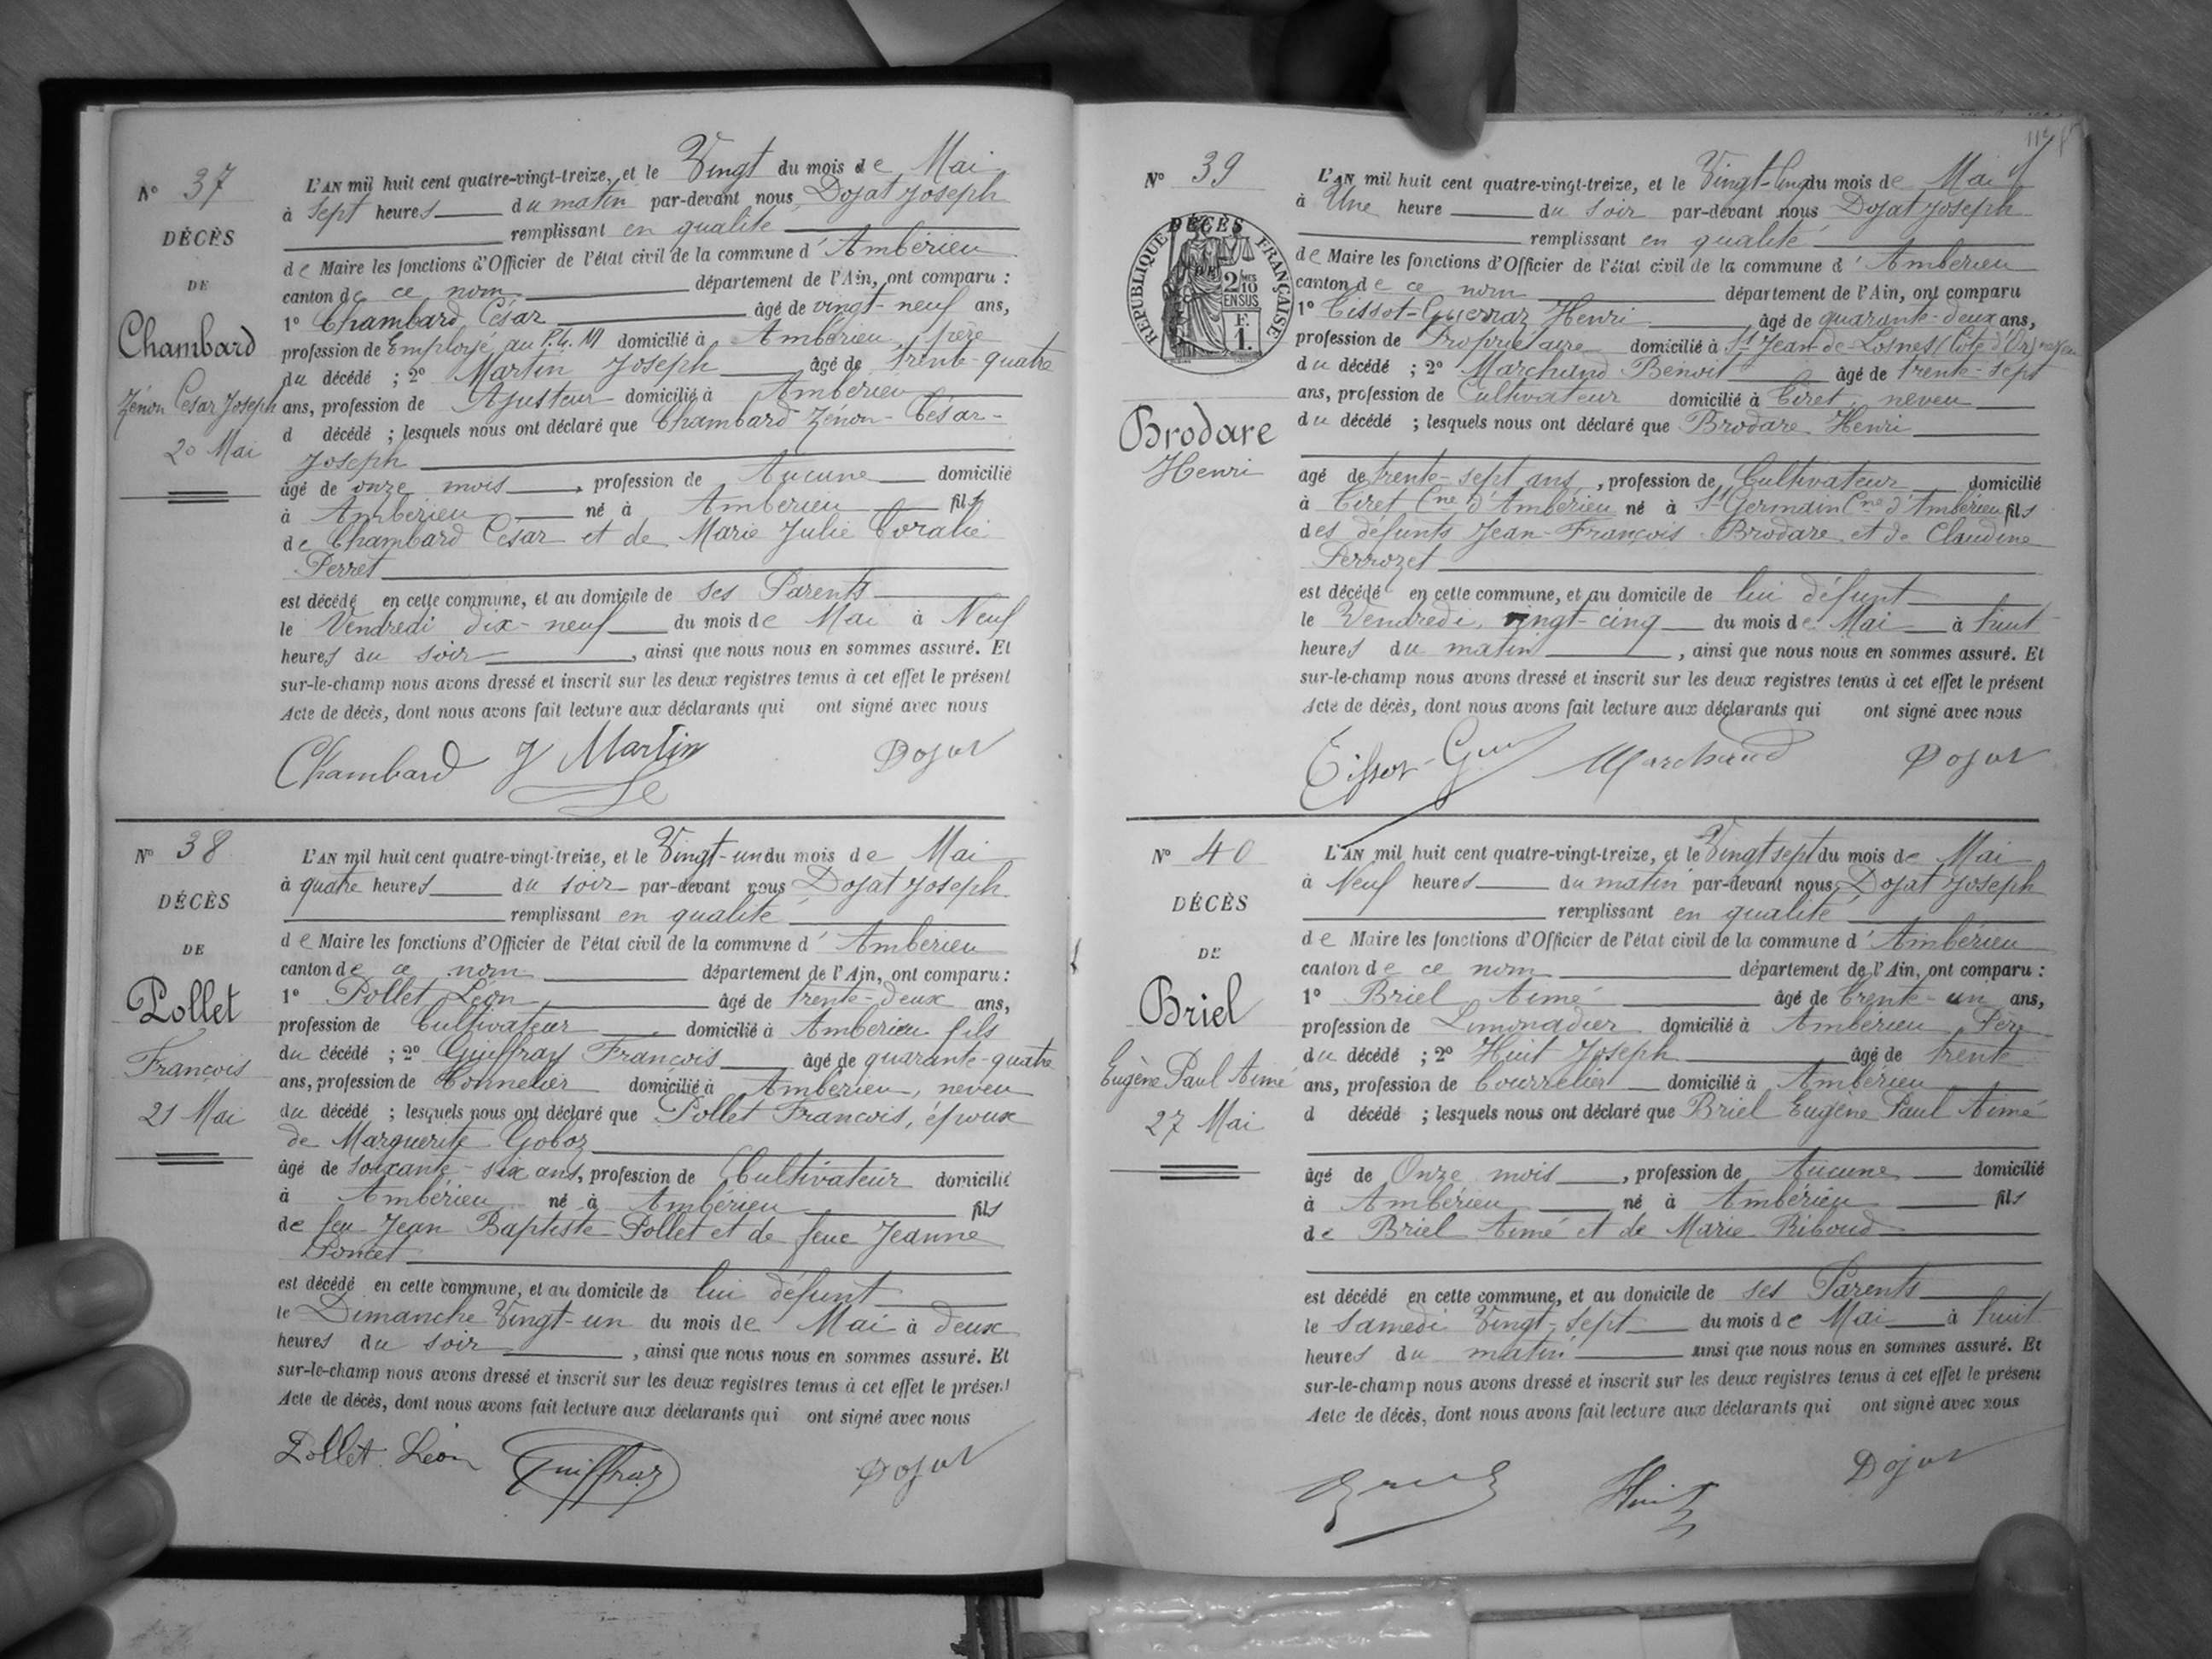 N° 37
DÉCÈS
DE
Chambard
Zénon César Joseph
20 Mai
L'AN mil huit cent quatre-vingt-treize, et le Vingt du mois de Mai
à Sept heures du matin par-devant nous Dojat Joseph
remplissant en qualité
de Maire les fonctions d'Officier de l'état civil de la commune d'Ambérieu
canton de ce nom département de l'Ain, ont comparu :
1° Chambard César âgé de vingt-neuf ans,
profession de Employé au P.L.M domicilié à Ambérieu, père
du décédé ; 2° Martin Joseph âgé de trente-quatre
ans, profession de Ajusteur domicilié à Ambérieu
d décédé ; lesquels nous ont déclaré que Chambard Zénon-César-
Joseph
âgé de onze mois, profession de Aucune domicilié
à Ambérieu né à Ambérieu fils
de Chambard César et de Marie Julie Coralie
Perret
est décédé en cette commune, et au domicile de ses Parents
le Vendredi dix-neuf du mois de Mai à Neuf
heures du soir, ainsi que nous nous en sommes assuré. Et
sur-le-champ nous avons dressé et inscrit sur les deux registres tenus à cet effet le présent
Acte de décès, dont nous avons fait lecture aux déclarants qui ont signé avec nous
Chambard J Martin Dojat
N° 38
DÉCÈS
DE
Pollet
François
21 Mai
L'AN mil huit cent quatre-vingt-treize, et le Vingt-un du mois de Mai
à quatre heures du soir par-devant nous Dojat Joseph
remplissant en qualité
de Maire les fonctions d'Officier de l'état civil de la commune d'Ambérieu
canton de ce nom département de l'Ain, ont comparu :
1° Pollet Léon, âgé de trente-deux ans,
profession de Cultivateur domicilié à Ambérieu fils
du décédé ; 2° Guiffray François âgé de quarante-quatre
ans, profession de Tonnelier domicilié à Ambérieu, neveu
du décédé ; lesquels nous ont déclaré que Pollet François, époux
de Marguerite Goboz
âgé de soixante-six ans, profession de Cultivateur domicilié
à Ambérieu né à Ambérieu fils
de feu Jean Baptiste Pollet et de feue Jeanne
Poncet
est décédé en cette commune, et au domicile de lui défunt
le Dimanche Vingt-un du mois de Mai à deux
heures du soir, ainsi que nous nous en sommes assuré. Et
sur-le-champ nous avons dressé et inscrit sur les deux registres tenus à cet effet le présent
Acte de décès, dont nous avons fait lecture aux déclarants qui ont signé avec nous
Pollet Léon Guiffray Dojat
N° 39
DÉCÈS
DE
RÉPUBLIQUE FRANÇAISE
2/10 EN SUS
F. 1.
Brodare
Henri
L'AN mil huit cent quatre-vingt-treize, et le Vingt-Cinq du mois de Mai
à Une heure du soir par-devant nous Dojat Joseph
remplissant en qualité
de Maire les fonctions d'Officier de l'état civil de la commune d'Ambérieu
canton de ce nom département de l'Ain, ont comparu
1° Tissot-Guerraz Henri, âgé de quarante-deux ans,
profession de Propriétaire domicilié à St Jean-de-Losnes (Côte d'Or) neveu
du décédé ; 2° Marchand Benoit âgé de trente-sept
ans, profession de Cultivateur domicilié à Tiret, neveu
du décédé ; lesquels nous ont déclaré que Brodare Henri
agé de trente-sept ans, profession de Cultivateur domicilié
à Tiret Cne d'Ambérieu né à St Germain Cne d'Ambérieu fils
des défunts Jean-François Brodare et de Claudine
Perrozet
est décédé en cette commune, et au domicile de lui défunt
le Vendredi, vingt-cinq du mois de Mai à huit
heures du matin, ainsi que nous nous en sommes assuré. Et
sur-le-champ nous avons dressé et inscrit sur les deux registres tenus à cet effet le présent
Acte de décès, dont nous avons fait lecture aux déclarants qui ont signé avec nous
Tissot-Guer Marchand Dojat
N° 40
DÉCÈS
DE
Briel
Eugène Paul Aimé
27 Mai
L'AN mil huit cent quatre-vingt-treize, et le Vingt sept du mois de Mai
à Neuf heures du matin par-devant nous, Dojat Joseph
remplissant en qualité
de Maire les fonctions d'Officier de l'état civil de la commune d'Ambérieu
canton de ce nom département de l'Ain, ont comparu :
1° Briel Aimé âgé de trente-un ans,
profession de Limonadier domicilié à Ambérieu, Père
du décédé ; 2° Huit Joseph âgé de trente
ans, profession de Courrelier domicilié à Ambérieu
d décédé ; lesquels nous ont déclaré que Briel Eugène Paul Aimé
âgé de Onze mois, profession de Aucune domicilié
à Ambérieu né à Ambérieu fils
de Briel Aimé et de Marie Riboud
est décédé en cette commune, et au domicile de ses Parents
le Samedi Vingt-sept du mois de Mai à huit
heures du matin ainsi que nous nous en sommes assuré. Et
sur-le-champ nous avons dressé et inscrit sur les deux registres tenus à cet effet le présent
Acte de décès, dont nous avons fait lecture aux déclarants qui ont signé avec nous
Huit Dojat